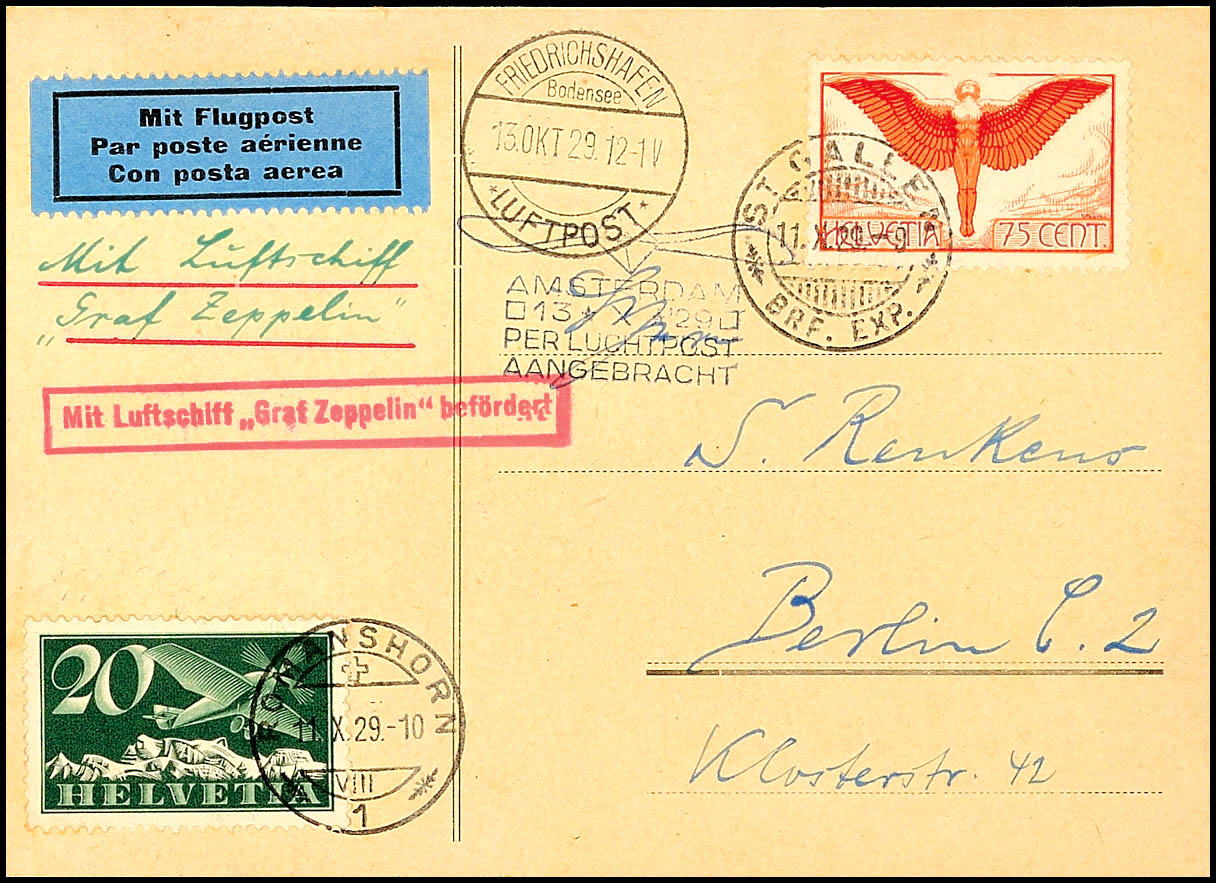 Mit Flugpost
Par poste aérienne
Con posta aerea
Mit Luftschiff
„Graf Zeppelin"
Mit Luftschiff „Graf Zeppelin" befördert
FRIEDRICHSHAFEN
Bodensee
13.OKT 29. 12-1 V
* LUFTPOST *
AMSTERDAM
13 * X '29
PER LUCHTPOST
AANGEBRACHT
ST. GALLEN
11.X.29.-9
BRF. EXP.
HELVETIA 75 CENT.
Renkens
Berlin C. 2
Klosterstr. 42
20
HELVETIA
ROMANSHORN
11.X.29.-10
VIII
1